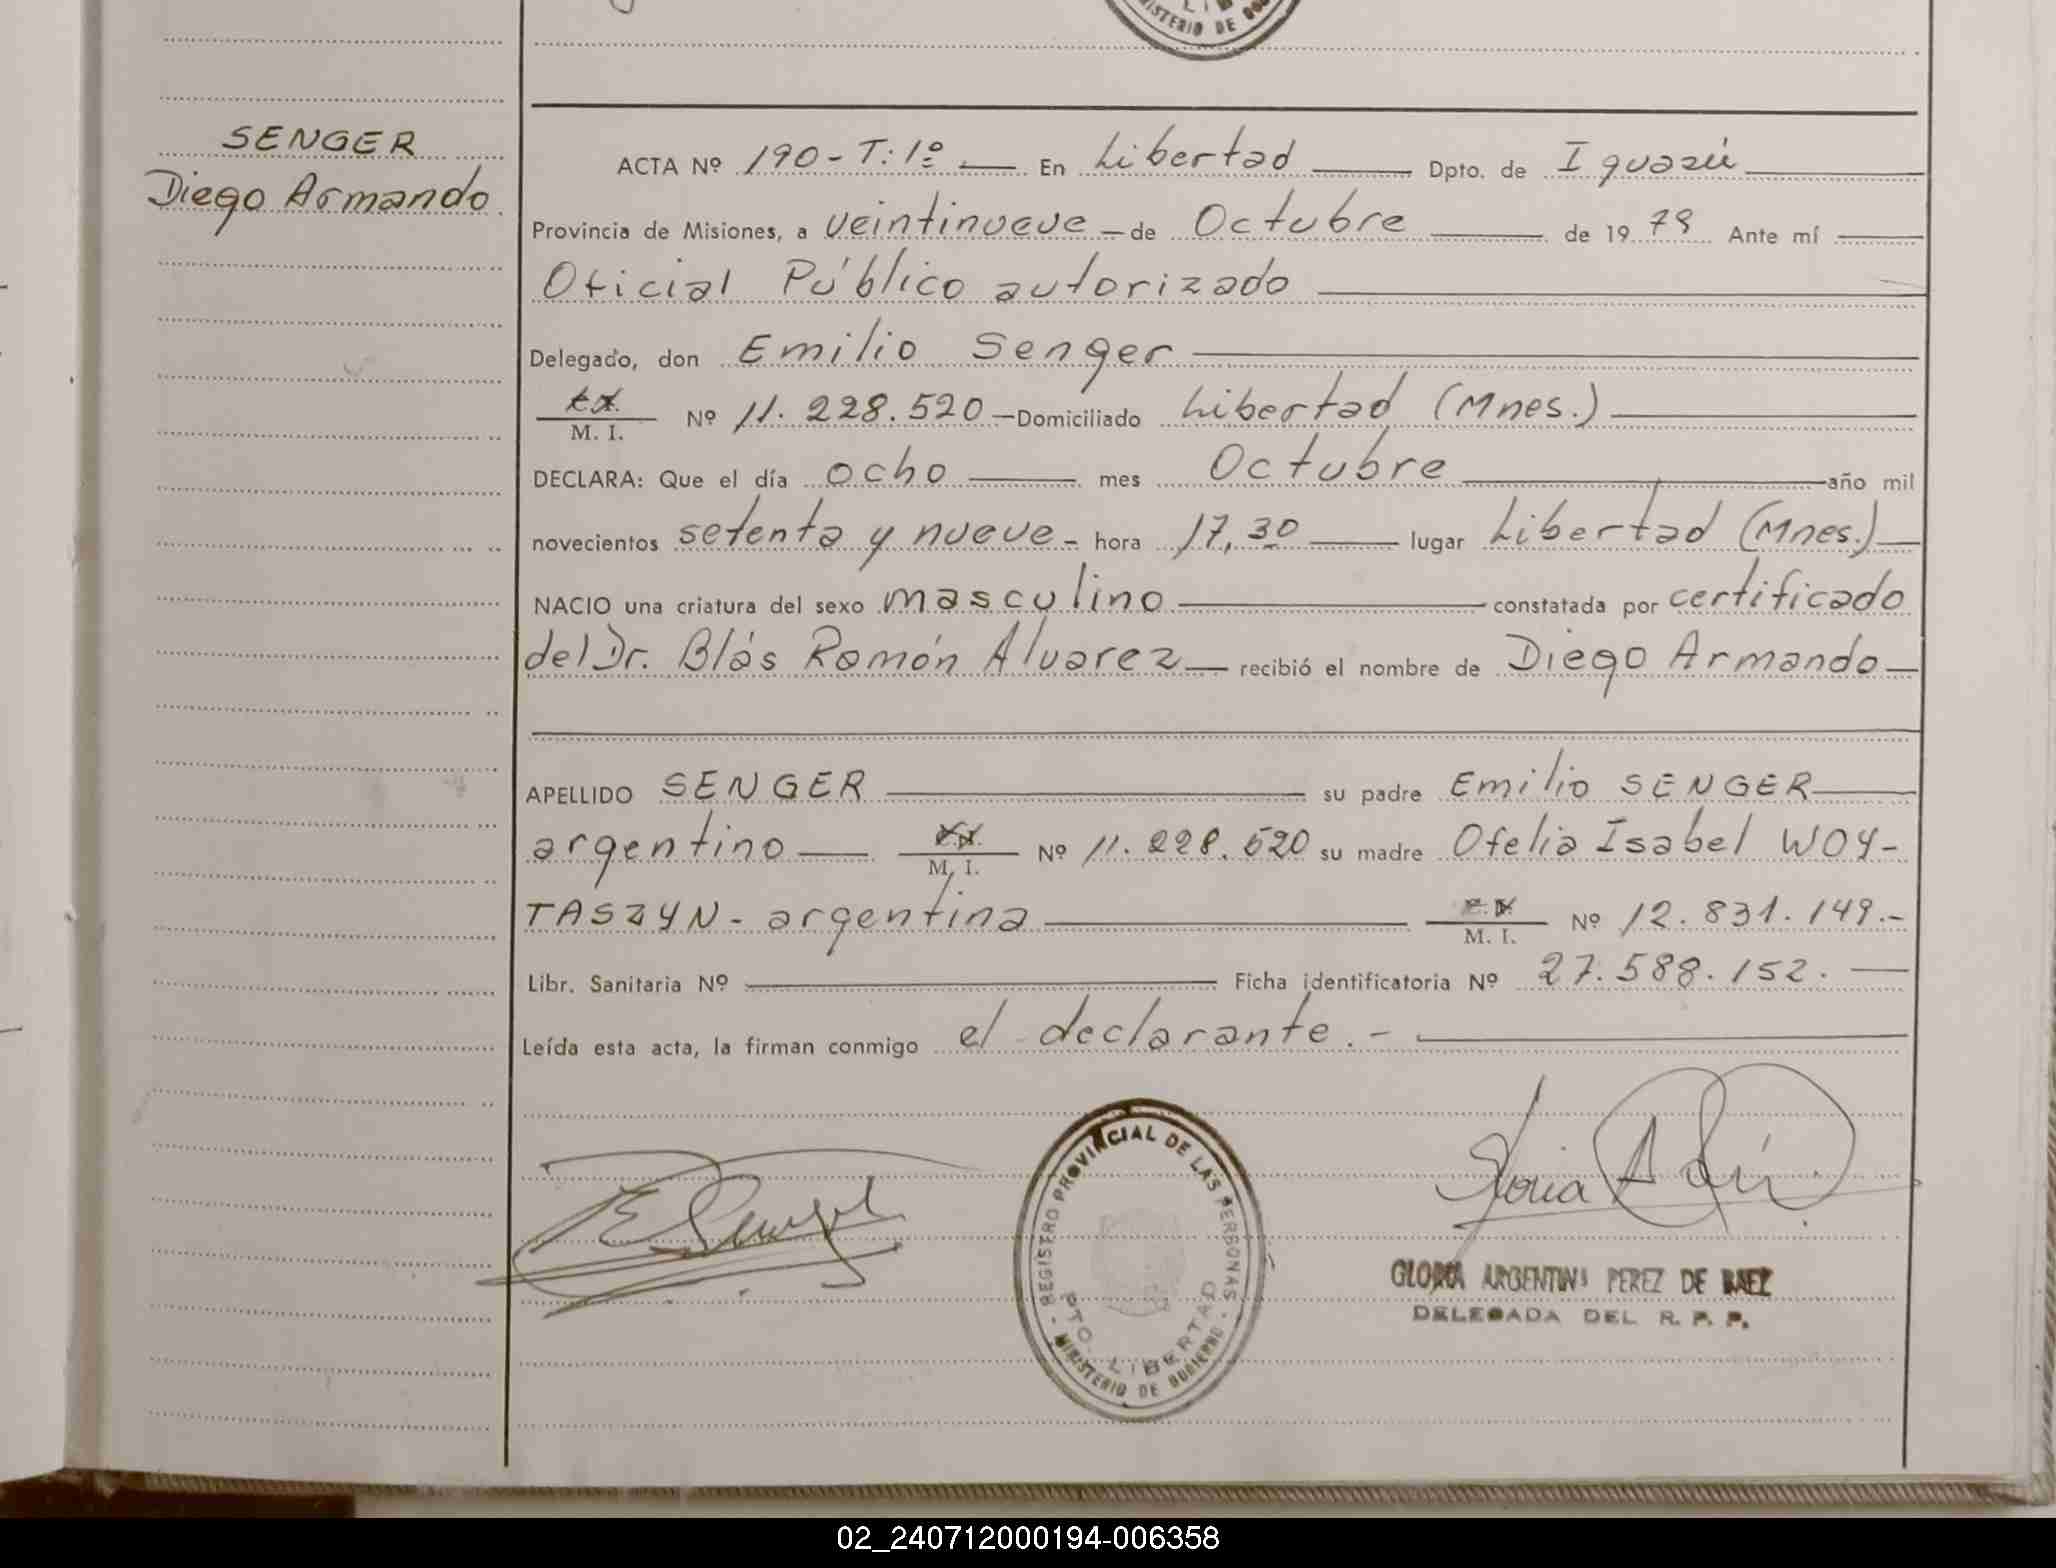 LI
MINISTERIO DE GOB
SENGER
Diego Armando
ACTA Nº 190 - T: 1º — En Libertad — Dpto. de Iguazú —
Provincia de Misiones, a veintinueve — de Octubre — de 1979 Ante mí —
Oficial Público autorizado —
Delegado, don Emilio Senger —
M. I. Nº 11.228.520 — Domiciliado Libertad (Mnes.) —
DECLARA: Que el día ocho — mes Octubre — año mil
novecientos setenta y nueve - hora 17,30 — lugar Libertad (Mnes.) —
NACIO una criatura del sexo masculino — constatada por certificado
del Dr. Blás Ramón Alvarez — recibió el nombre de Diego Armando —
APELLIDO SENGER — su padre Emilio SENGER —
argentino — M. I. Nº 11.228.520 su madre Ofelia Isabel WOY-
TASZYN - argentina — M. I. Nº 12.831.149.-
Libr. Sanitaria Nº — Ficha identificatoria Nº 27.588.152. —
Leída esta acta, la firman conmigo el declarante. - —
E Senger
REGISTRO PROVINCIAL DE LAS PERSONAS
PTO. LIBERTAD
- MINISTERIO DE GOBIERNO -
Gloria A
GLORIA ARGENTINA PEREZ DE BAEZ
DELEGADA DEL R. P. P.
02_240712000194-006358